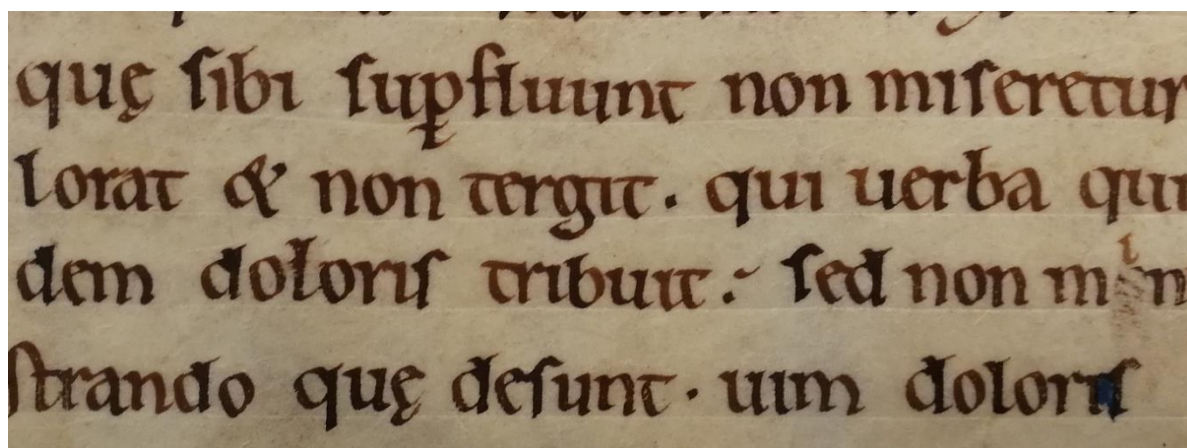 quę sibi suꝑfluunt non miseretur
lorat & non tergit. qui uerba qui
dem doloris tribuit: sed non min
strando quę desunt. uim doloris